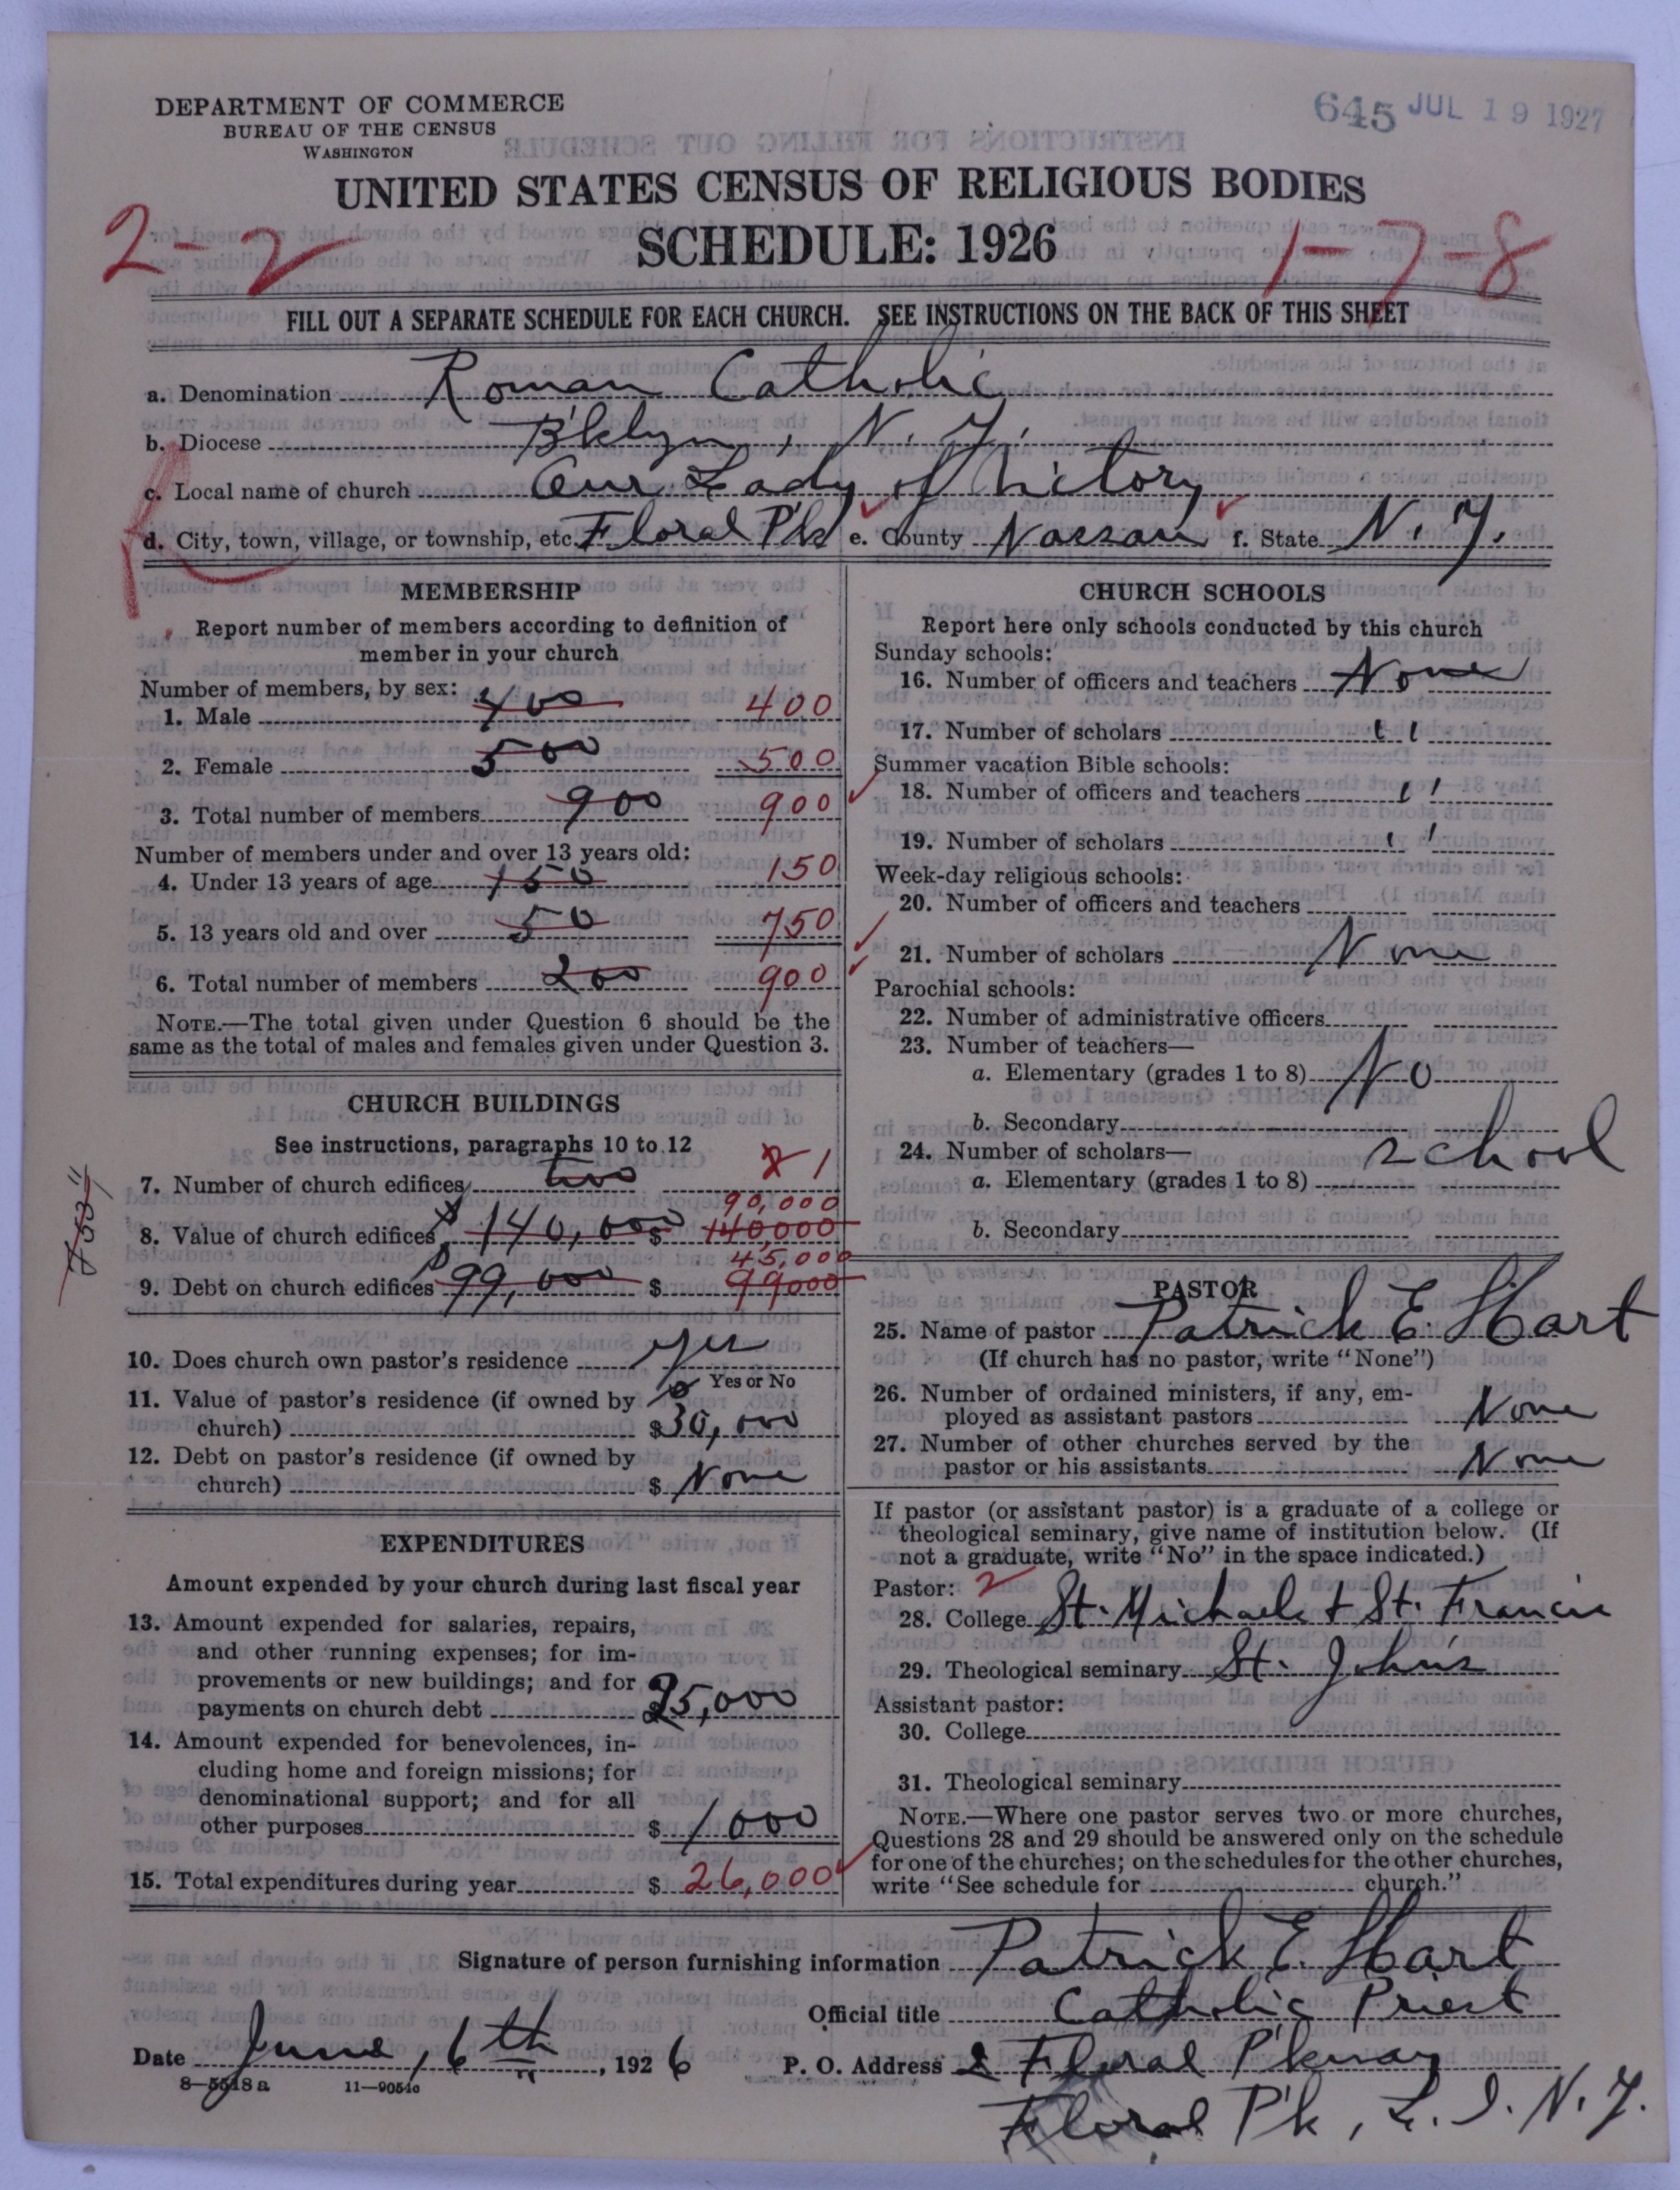 DEPARTMENT OF COMMERCE
BUREAU OF THE CENSUS
WASHINGTON
645 JUL 19 1927
UNITED STATES CENSUS OF RELIGIOUS BODIES
SCHEDULE: 1926
2-2
1-7-8
FILL OUT A SEPARATE SCHEDULE FOR EACH CHURCH. SEE INSTRUCTIONS ON THE BACK OF THIS SHEET
a. Denomination Roman Catholic
b. Diocese B'klyn, N. Y.
c. Local name of church Our Lady of Victory
d. City, town, village, or township, etc. Floral P'k e. County Nassau f. State N. Y.
MEMBERSHIP
Report number of members according to definition of
member in your church
Number of members, by sex:
1. Male 400 400
2. Female 500 500
3. Total number of members 900 900
Number of members under and over 13 years old:
4. Under 13 years of age 150 150
5. 13 years old and over 50 750
6. Total number of members 200 900
NOTE.—The total given under Question 6 should be the
same as the total of males and females given under Question 3.
CHURCH BUILDINGS
See instructions, paragraphs 10 to 12
7. Number of church edifices two 2 1
90,000
8. Value of church edifices $ 140,000 $ 140,000
45,000
9. Debt on church edifices $ 99,000 $ 99000
10. Does church own pastor's residence yes
Yes or No
11. Value of pastor's residence (if owned by
church) $ 30,000
12. Debt on pastor's residence (if owned by
church) $ None
EXPENDITURES
Amount expended by your church during last fiscal year
13. Amount expended for salaries, repairs,
and other running expenses; for im-
provements or new buildings; and for
payments on church debt 25,000
14. Amount expended for benevolences, in-
cluding home and foreign missions; for
denominational support; and for all
other purposes $ 1000
15. Total expenditures during year $ 26,000
CHURCH SCHOOLS
Report here only schools conducted by this church
Sunday schools:
16. Number of officers and teachers None
17. Number of scholars " 
Summer vacation Bible schools:
18. Number of officers and teachers "
19. Number of scholars "
Week-day religious schools:
20. Number of officers and teachers
21. Number of scholars None
Parochial schools:
22. Number of administrative officers
23. Number of teachers—
a. Elementary (grades 1 to 8) No
b. Secondary
24. Number of scholars— school
a. Elementary (grades 1 to 8)
b. Secondary
PASTOR
25. Name of pastor Patrick E. Hart
(If church has no pastor, write "None")
26. Number of ordained ministers, if any, em-
ployed as assistant pastors None
27. Number of other churches served by the
pastor or his assistants None
If pastor (or assistant pastor) is a graduate of a college or
theological seminary, give name of institution below. (If
not a graduate, write "No" in the space indicated.)
Pastor: 2
28. College St. Michaels + St. Francis
29. Theological seminary St. John's
Assistant pastor:
30. College
31. Theological seminary
NOTE.—Where one pastor serves two or more churches,
Questions 28 and 29 should be answered only on the schedule
for one of the churches; on the schedules for the other churches,
write "See schedule for church."
Signature of person furnishing information Patrick E. Hart
Official title Catholic Priest
Date June, 6th, 1926 P. O. Address 2 Floral P'kway
8—5518 a 11—9054c
Floral P'k, L. I. N. Y.